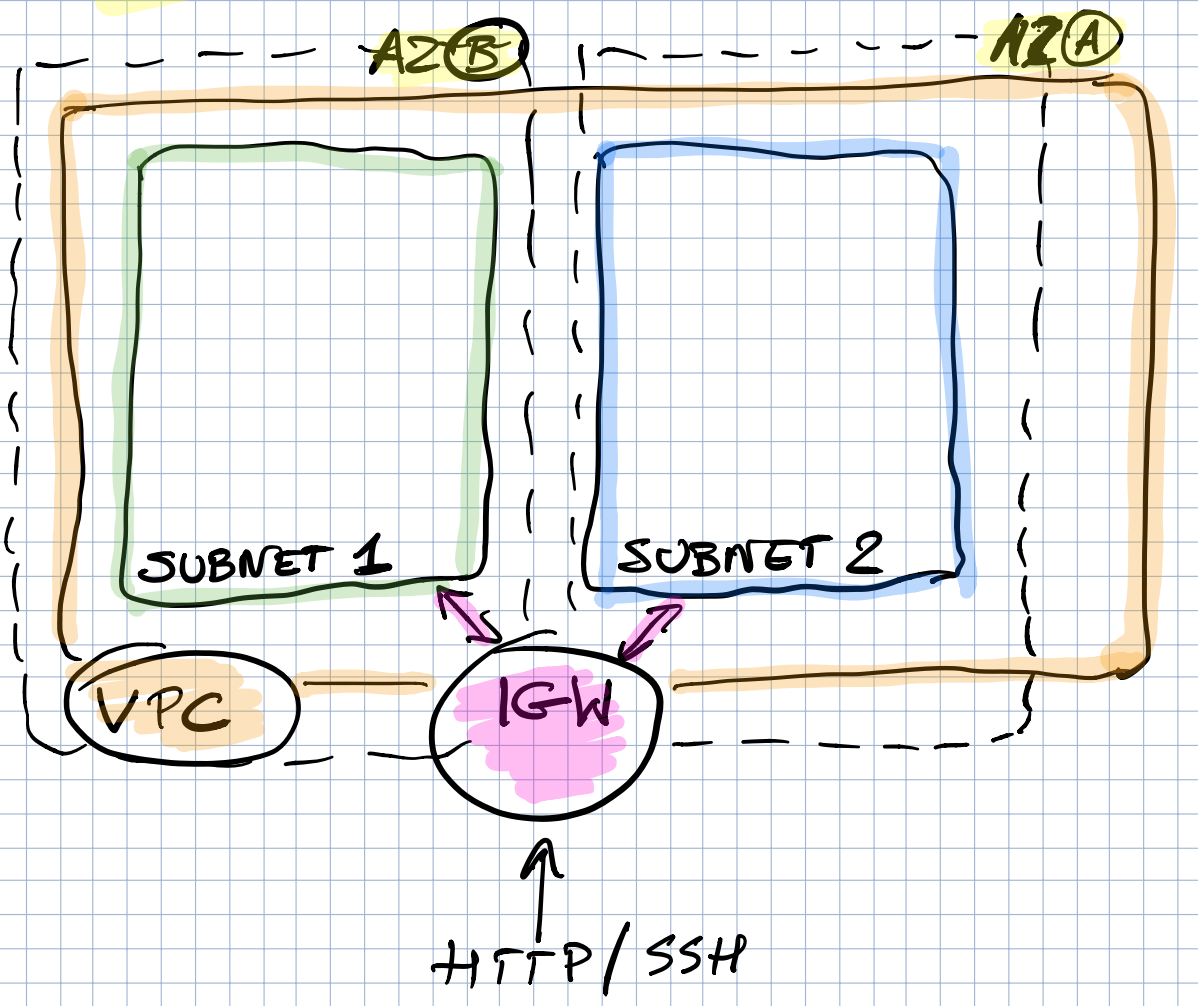 AZ B
AZ A
SUBNET 1
SUBNET 2
VPC
IGW
HTTP/SSH